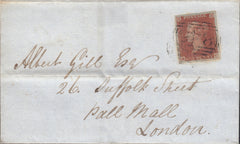 Albert Gill Esq
26 Suffolk Street
Pall Mall
London.